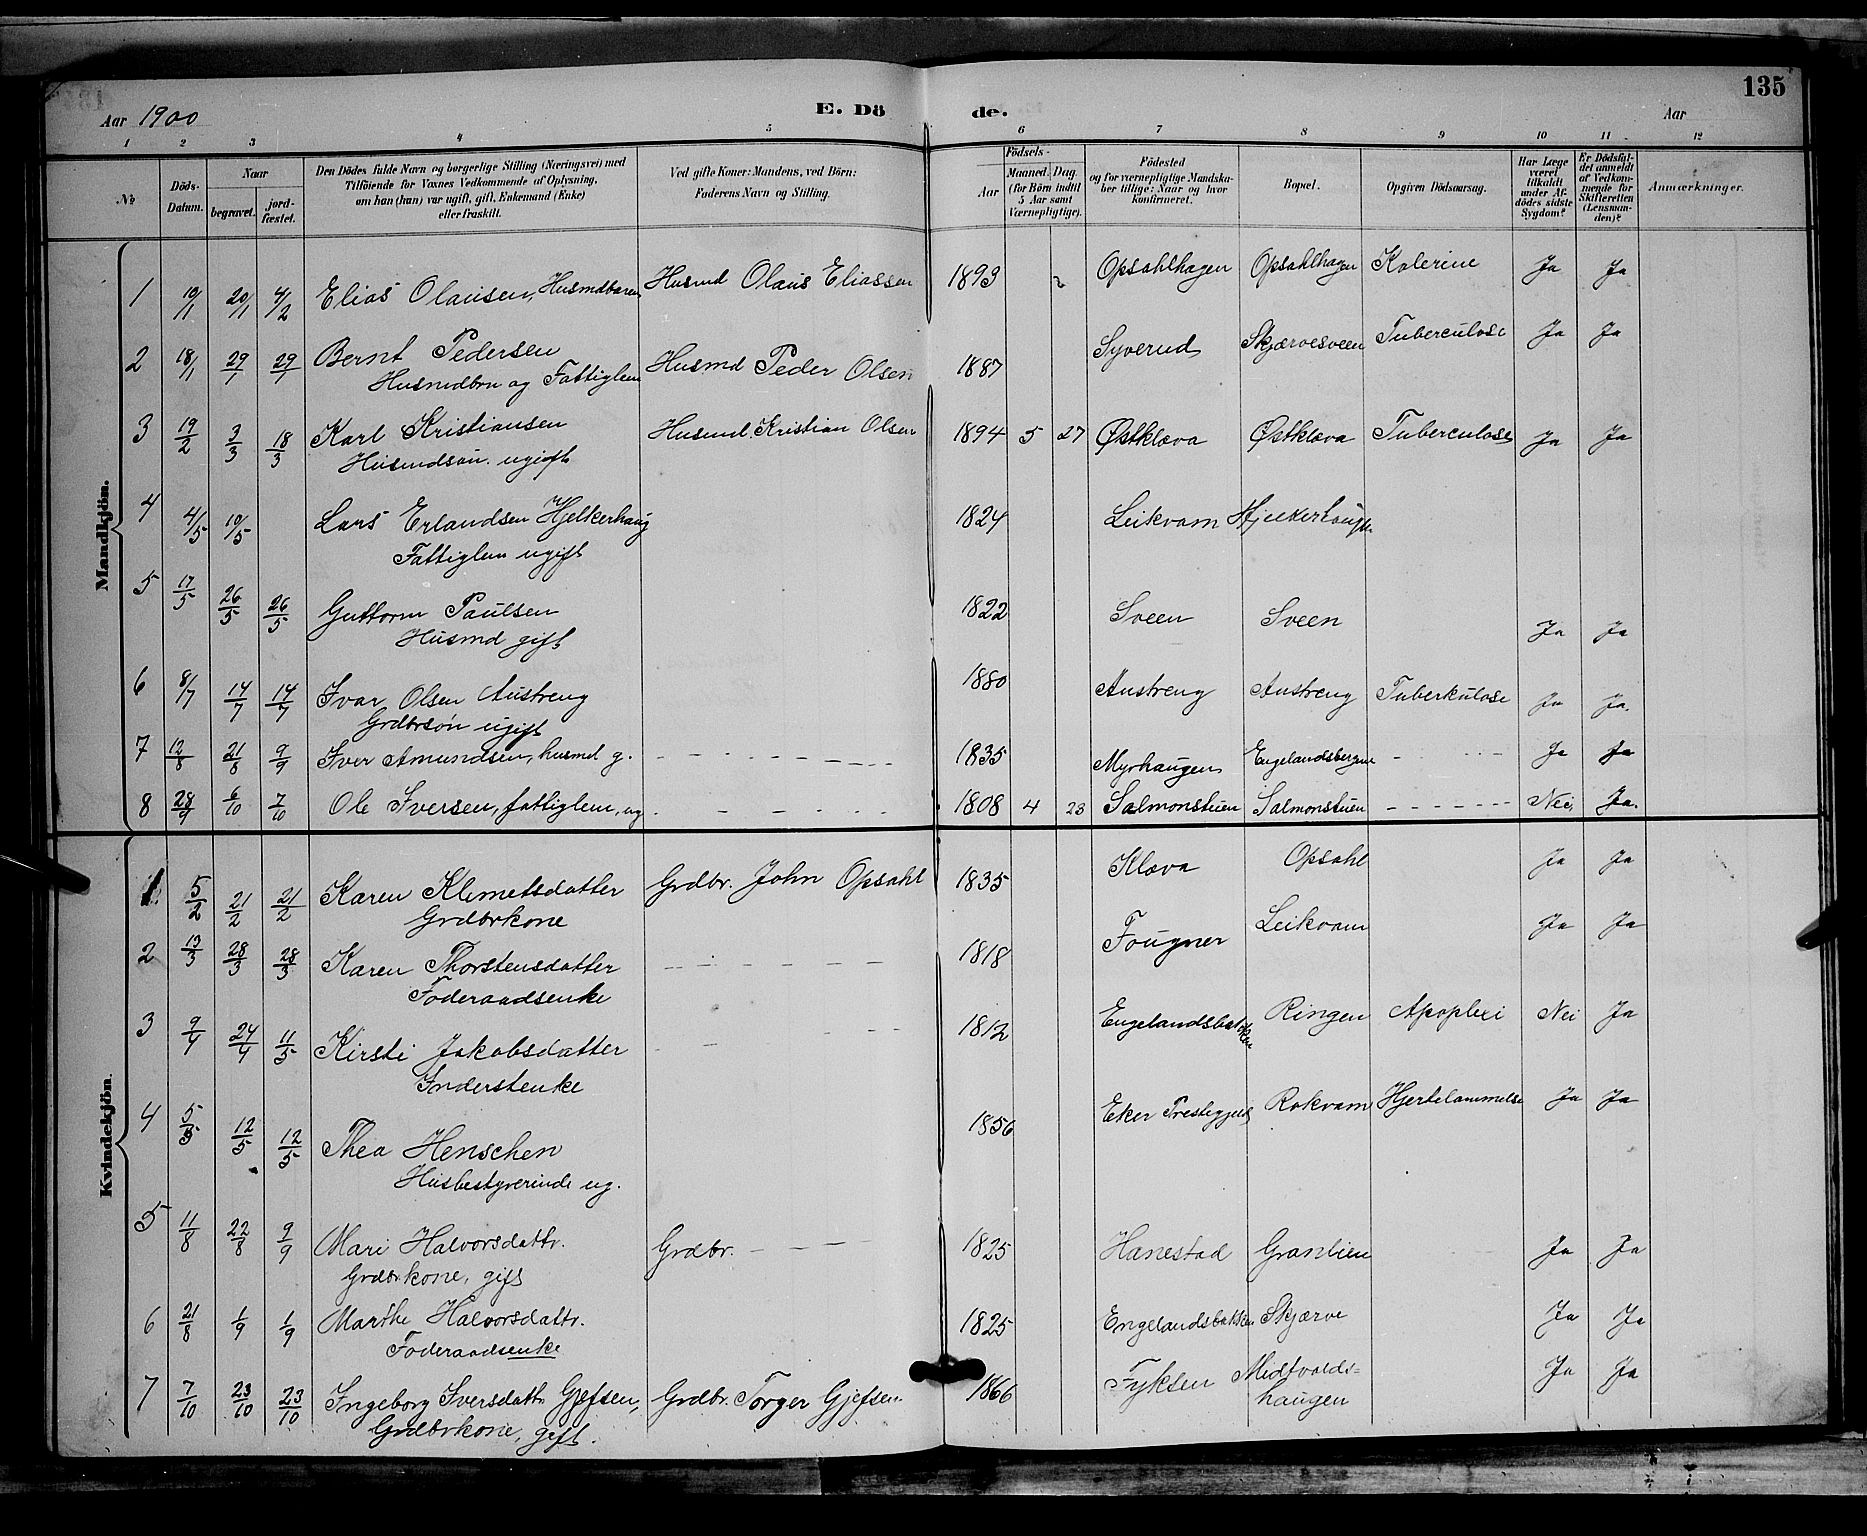 135
Aar 1900 E. Dö de. Aar
1 2 3 4 5 6 7 8 9 10 11 12
№ Döds-Datum. Naar begravet. jordfæstet. Den Dödes fulde Navn og borgerlige Stilling (Næringsvei) med Tilföiende for Voxnes Vedkommende af Oplysning, om han (hun) var ugift, gift, Enkemand (Enke) eller fraskilt. Ved gifte Koner: Mandens, ved Börn: Faderens Navn og Stilling. Födsels- Aar Maaned. Dag. (for Börn indtil 5 Aar samt Værnepligtige). Födested og for værnepligtige Mandskaber tillige: Naar og hvor konfirmeret. Bopæl. Opgiven Dödsaarsag. Har Læge været tilkaldt under Afdödes sidste Sygdom? Er Dödsfaldet anmeldt af Vedkommende for Skifteretten (Lensmanden)? Anmærkninger.
Mandkjön.
1 10/1 20/1 4/2 Elias Olausen, Husmdbarn Husmd Olaus Eliassen 1893 2 Opsahlhagen Opsahlhagen Kolerine Ja Ja
2 18/1 29/1 29/1 Bernt Pedersen Husmd Peder Olsen 1887 Syverud Skjærvesveen Tuberculose Ja Ja
Husmdbrn og Fattiglem
3 19/2 3/3 18/3 Karl Kristiansen Husmd. Kristian Olsen 1894 5 27 Østklæva Østklæva Tuberculose Ja Ja
Husmdsøn. ugift
4 4/5 10/5 Lars Erlandsen Hjelkerhaug 1824 Leikvam
Fattiglem ugift
5 17/5 26/5 26/5 Guttorm Paulsen 1822 Sveen Sveen Ja Ja
Husmd gift
6 8/7 14/7 14/7 Ivar Olsen Austreng 1880 Austreng Austreng Tuberkulose Ja Ja.
Grdbrsøn ugift
7 12/8 21/8 9/9 Iver Amundsen, husmd g. 1835 Myrhaugen Engelandsbergene Ja Ja
8 28/9 6/10 7/10 Ole Iversen, fattiglem, ug. 1808 4 23 Salmonstuen Salmonstuen Nei, Ja.
Kvindekjön.
1 5/2 21/2 21/2 Karen Klemetsdatter Grdbr. John Opsahl 1835 Klæva Opsahl Ja Ja
Grdbrkone
2 13/3 28/3 28/3 Karen Thorstensdatter 1818 Fougner Leikvam Ja Ja
Føderaadsenke
3 9/4 24/4 11/5 Kirsti Jakobsdatter 1812 Engelandsbakken Ringen Apoplexi Nei Ja
Inderstenke
4 5/5 12/5 12/5 Thea Henschen 1856 Eker Prestegjeld Rokvam Hjertelammelse Ja Ja
Husbestyrerinde ug.
5 11/8 22/8 9/9 Mari Halvorsdattr. Grdbr. 1825 Hanestad Granlien Ja Ja
Grdbrkone, gift
6 21/8 1/9 1/9 Marthe Halvorsdattr. 1825 Engelandsbakken Skjærve Ja Ja
Føderaadsenke
7 7/10 23/10 23/10 Ingeborg Iversdattr Gjefsen, Grdbr. Torger Gjefsen. 1866 Fyksen Midtvoldshaugen Ja Ja
Grdbrkone, gift.